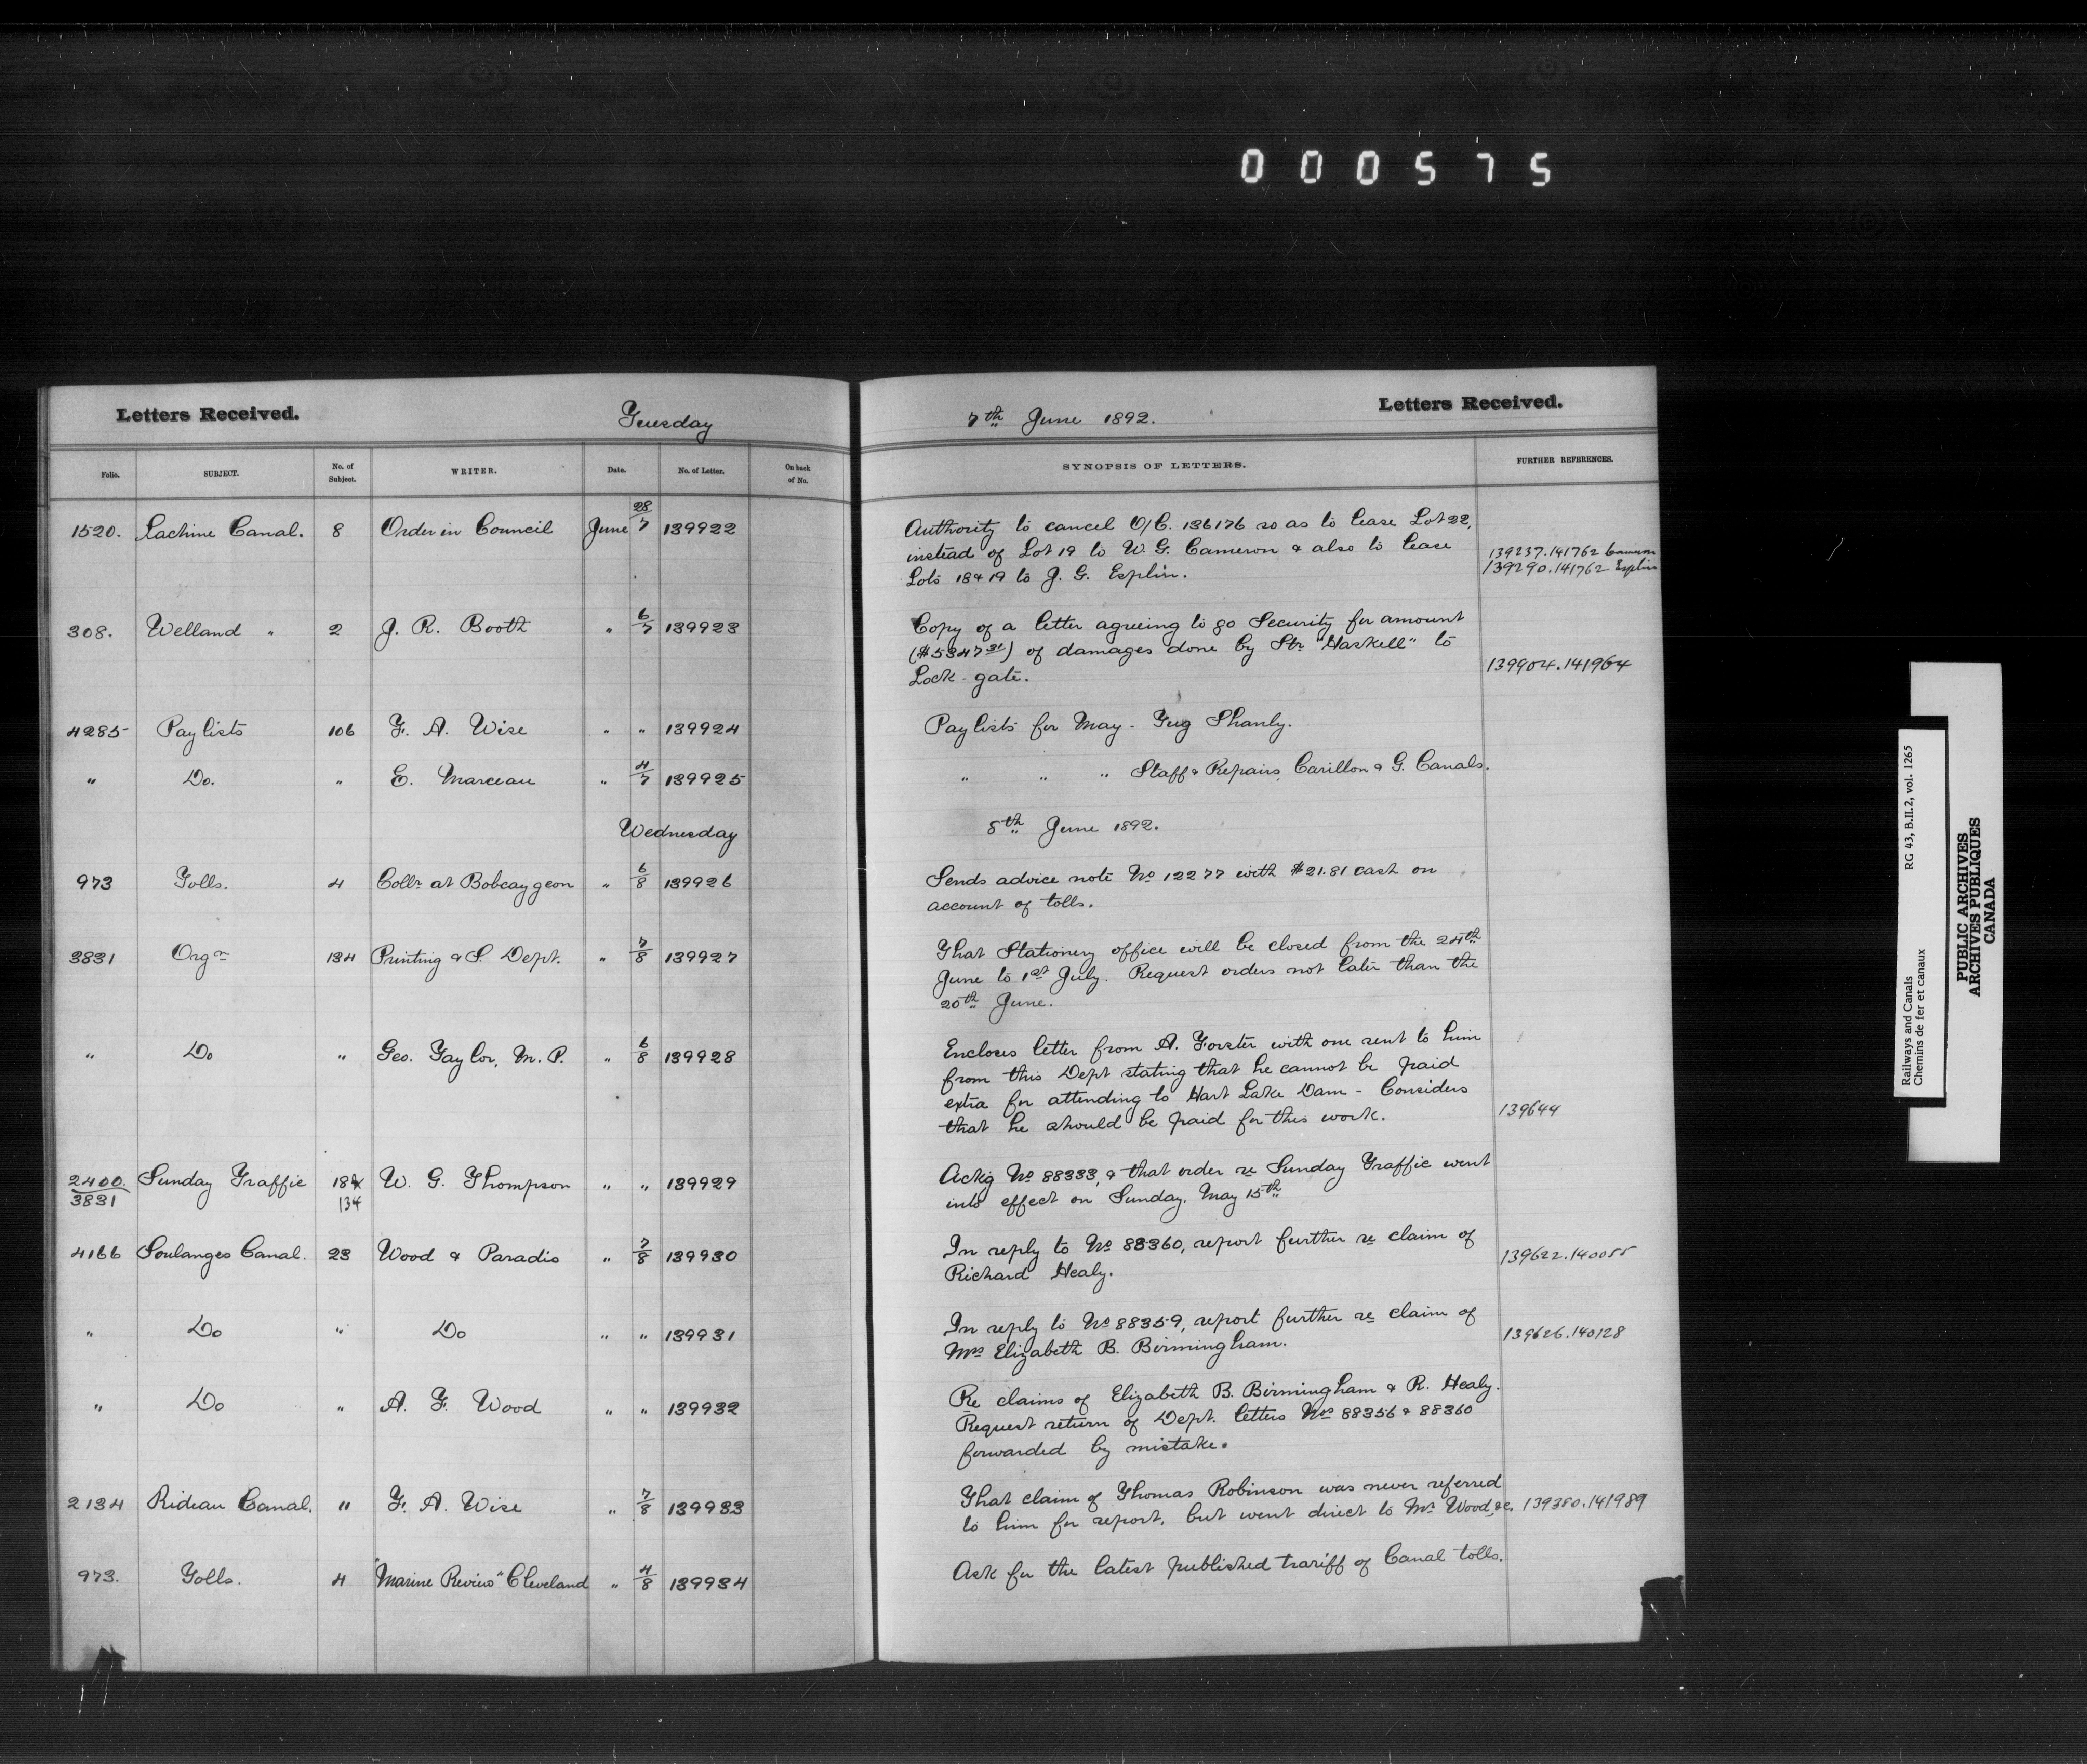 000575
Letters Received. Tuesday 7th June 1892. Letters Received.
Folio. SUBJECT. No. of Subject. WRITER. Date. No. of Letter. On back of No. SYNOPSIS OF LETTERS. FURTHER REFERENCES.
1520. Lachine Canal. 8 Order in Council June 28/7 139922 Authority to cancel O/C. 136176 so as to lease Lot 22,
instead of Lot 19 to W. G. Cameron & also to lease 139237.141762 Cameron
Lots 18 & 19 to J. G. Esplin. 139290.141762 Esplin
308. Welland " 2 J. R. Booth " 6/7 139923 Copy of a letter agreeing to go Security for amount
($5347 31) of damages done by Str "Haskell" to 139904.141964
Lock-gate.
4285 Paylists 106 F. A. Wise " " 139924 Paylists for May - Tug Shanly.
" Do. " E. Marceau " 4/7 139925 " " " Staff & Repairs, Carillon & G. Canals.
Wednesday 8th June 1892.
973 Tolls. 4 Collr at Bobcaygeon " 6/8 139926 Sends advice note No 12277 with $21.81 cash on
account of tolls.
3831 Orgn 134 Printing & S. Dept. " 7/8 139927 That Stationery office will be closed from the 24th
June to 1st July. Request orders not later than the
20th June.
" Do " Geo. Taylor, M.P. " 6/8 139928 Encloses letter from A. Forster with one sent to him
from this Dept stating that he cannot be paid
extra for attending to Hart Lake Dam - Considers
that he should be paid for this work. 139644
2400/3831 Sunday Traffic 134 W. G. Thompson " " 139929 Ackg No 88333, & that order re Sunday Traffic went
into effect on Sunday, May 15th
4166 Soulanges Canal. 23 Wood & Paradis " 7/8 139930 In reply to No 88360, report further re claim of
Richard Healy. 139622.140055
" Do " Do " " 139931 In reply to No 88359, report further re claim of
Mrs Elizabeth B. Birmingham. 139626.140128
" Do " A. F. Wood " " 139932 Re claims of Elizabeth B. Birmingham & R. Healy.
Request return of Dept. letters Nos 88356 & 88360
forwarded by mistake.
2134 Rideau Canal. 11 F. A. Wise " 7/8 139933 That claim of Thomas Robinson was never referred
to him for report, but went direct to Mr Wood, &c. 139380.141989
973. Tolls. 4 "Marine Review" Cleveland " 4/8 139934 Ask for the latest published tariff of Canal tolls.
Railways and Canals RG 43, B.II.2, vol. 1265
Chemins de fer et canaux
PUBLIC ARCHIVES
ARCHIVES PUBLIQUES
CANADA